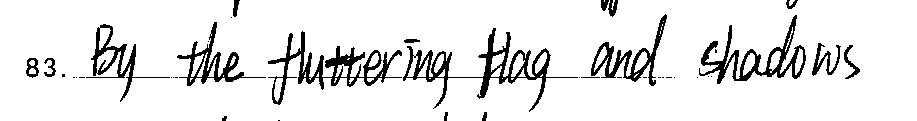 83. By the fluttering flag and shadows